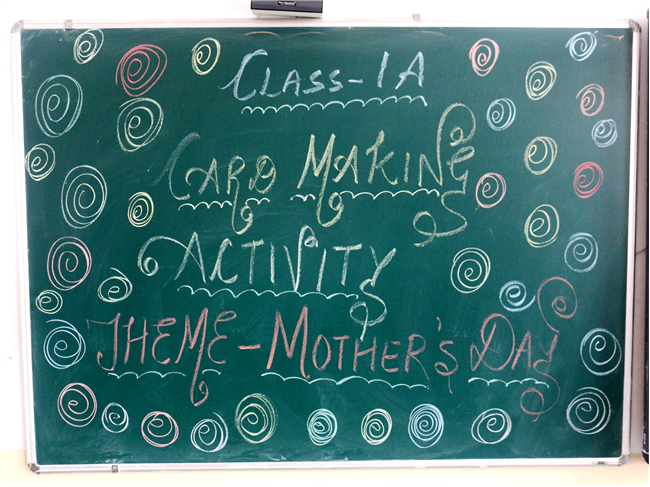 CLASS-1A
CARD MAKING
ACTIVITY
THEME - MOTHER'S DAY